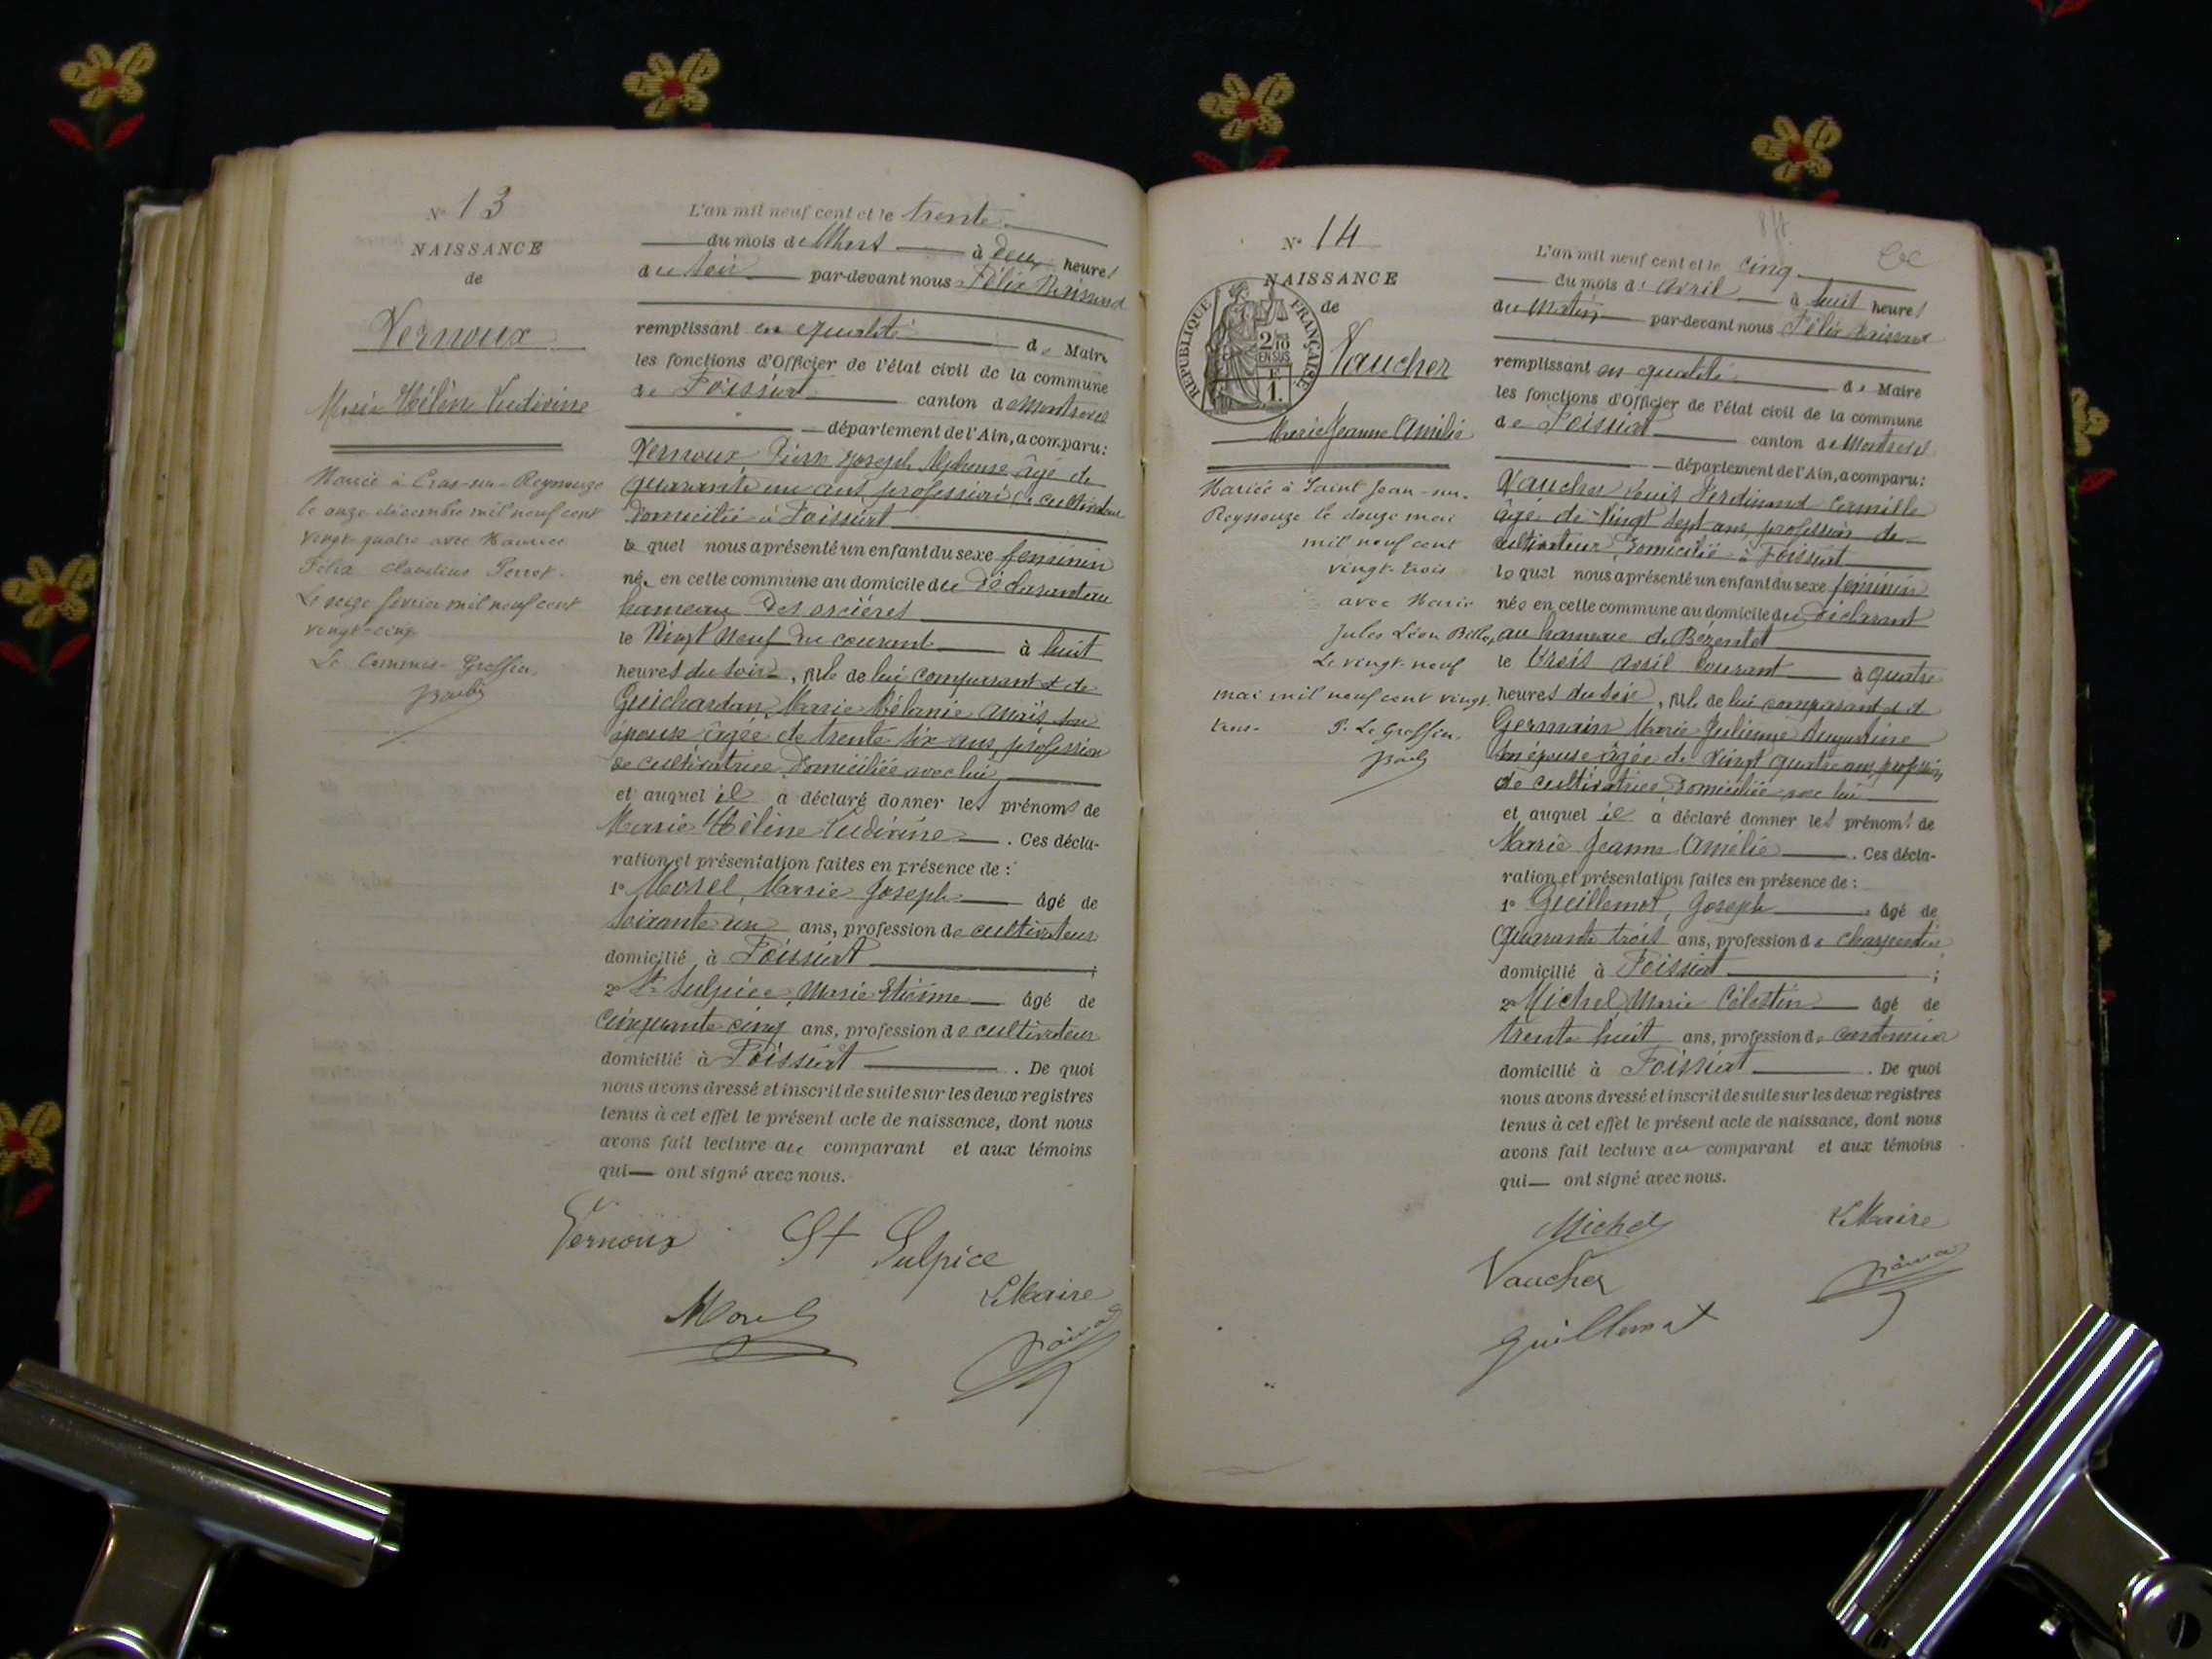 N° 13
NAISSANCE
de
Vernoux
Marie Hélène Ludivine
Mariée à Cras-sur-Reyssouze
le onze décembre mil neuf cent
vingt-quatre avec Maurice
Félix Claudius Perret.
Le seize février mil neuf cent
vingt-cinq
Le Commis-Greffier,
L'an mil neuf cent et le trente
du mois de Mars à deux heures
du soir par-devant nous Félix
remplissant en qualité de Maire
les fonctions d'Officier de l'état civil de la commune
de Foissiat canton de Montrevel
département de l'Ain, a comparu:
Vernoux, Pierre Joseph Alphonse âgé de
quarante un ans, profession de cultivateur
domicilié à Foissiat
le quel nous a présenté un enfant du sexe féminin
née en cette commune au domicile du déclarant au
hameau des
le vingt neuf du courant à huit
heures du soir, fille de lui comparant et de
Guichardan, Marie Mélanie Anaïs son
épouse âgée de trente six ans, profession
de cultivatrice domiciliée avec lui
et auquel il a déclaré donner les prénoms de
Marie Hélène Ludivine. Ces décla-
ration et présentation faites en présence de :
1° Morel, Marie Joseph âgé de
soixante un ans, profession de cultivateur
domicilié à Foissiat ;
2° St Sulpice, Marie Etienne âgé de
cinquante cinq ans, profession de cultivateur
domicilié à Foissiat. De quoi
nous avons dressé et inscrit de suite sur les deux registres
tenus à cet effet le présent acte de naissance, dont nous
avons fait lecture au comparant et aux témoins
qui ont signé avec nous.
Vernoux St Sulpice
Morel Le Maire
N° 14
NAISSANCE
de
REPUBLIQUE FRANÇAISE
2/10
EN SUS
F.
1.
Vaucher
Marie Jeanne Amélie
Mariée à Saint Jean-sur-
Reyssouze le douze mai
mil neuf cent
vingt-trois
avec Marie
Jules Léon
Le vingt-neuf
mai mil neuf cent vingt-
trois. P. Le Greffier,
L'an mil neuf cent et le cinq
du mois d'avril à huit heures
du matin par-devant nous Félix
remplissant en qualité de Maire
les fonctions d'Officier de l'état civil de la commune
de Foissiat canton de Montrevel
département de l'Ain, a comparu:
Vaucher Louis Ferdinand Camille
âgé de vingt sept ans, profession de
cultivateur domicilié à Foissiat
le quel nous a présenté un enfant du sexe féminin
née en cette commune au domicile du déclarant
au hameau de Bézentet
le trois avril courant à quatre
heures du soir, fille de lui comparant et de
Germain Marie Julienne Augustine
son épouse âgée de vingt quatre ans, profession
de cultivatrice domiciliée avec lui
et auquel il a déclaré donner les prénoms de
Marie Jeanne Amélie. Ces décla-
ration et présentation faites en présence de :
1° Guillemot, Joseph âgé de
quarante trois ans, profession de charpentier
domicilié à Foissiat ;
2° Michel Marie Célestin âgé de
trente huit ans, profession de cantonnier
domicilié à Foissiat. De quoi
nous avons dressé et inscrit de suite sur les deux registres
tenus à cet effet le présent acte de naissance, dont nous
avons fait lecture au comparant et aux témoins
qui ont signé avec nous.
Michel Le Maire
Vaucher
Guillemot